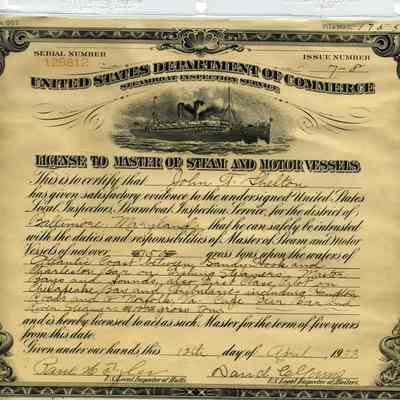 SERIAL NUMBER
129812
ISSUE NUMBER
7-8
UNITED STATES DEPARTMENT OF COMMERCE
STEAMBOAT INSPECTION SERVICE
LICENSE TO MASTER OF STEAM AND MOTOR VESSELS.
This is to certify that John T. Shelton
has given satisfactory evidence to the undersigned United States
Local Inspectors, Steamboat Inspection Service, for the district of
Baltimore, Maryland, that he can safely be entrusted
with the duties and responsibilities of Master of Steam and Motor
Vessels of not over gross tons, upon the waters of
Atlantic Coast between Sandy Hook and
Charleston Bar on Fishing Steamers, Master
Bays and Sounds, also First Class Pilot on
Chesapeake Bay and tributaries including Hampton
Roads and to Norfolk, Va. Cape Fear Bar and
gross tons
and is hereby licensed to act as such Master for the term of five years
from this date.
Given under our hands this 12th day of April 1933
U.S. Local Inspector of Hulls.
U.S. Local Inspector of Boilers.